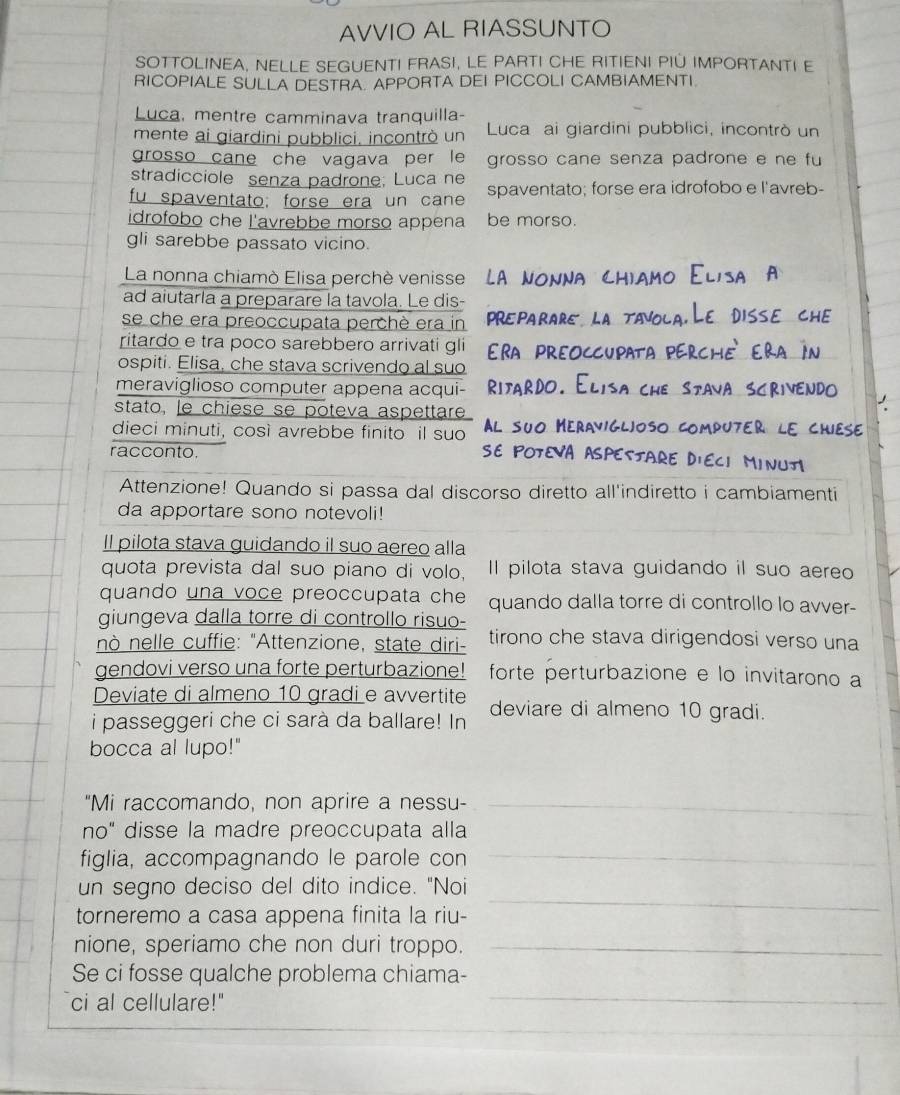 AVVIO AL RIASSUNTO
SOTTOLINEA, NELLE SEGUENTI FRASI, LE PARTI CHE RITIENI PIÙ IMPORTANTI E
RICOPIALE SULLA DESTRA. APPORTA DEI PICCOLI CAMBIAMENTI.
Luca, mentre camminava tranquilla-
mente ai giardini pubblici, incontrò un
grosso cane che vagava per le
stradicciole senza padrone; Luca ne
fu spaventato; forse era un cane
idrofobo che l'avrebbe morso appena
gli sarebbe passato vicino.
Luca ai giardini pubblici, incontrò un
grosso cane senza padrone e ne fu
spaventato; forse era idrofobo e l'avreb-
be morso.
La nonna chiamò Elisa perchè venisse
ad aiutarla a preparare la tavola. Le dis-
se che era preoccupata perchè era in
ritardo e tra poco sarebbero arrivati gli
ospiti. Elisa, che stava scrivendo al suo
meraviglioso computer appena acqui-
stato, le chiese se poteva aspettare
dieci minuti, così avrebbe finito il suo
racconto.
LA NONNA CHIAMO ELISA A
PREPARARE LA TAVOLA. LE DISSE CHE
ERA PREOCCUPATA PERCHE' ERA IN
RITARDO. ELISA CHE STAVA SCRIVENDO
AL SUO MERAVIGLIOSO COMPUTER LE CHIESE
SE POTEVA ASPETTARE DIECI MINUTI
Attenzione! Quando si passa dal discorso diretto all'indiretto i cambiamenti
da apportare sono notevoli!
Il pilota stava guidando il suo aereo alla
quota prevista dal suo piano di volo,
quando una voce preoccupata che
giungeva dalla torre di controllo risuo-
nò nelle cuffie: "Attenzione, state diri-
gendovi verso una forte perturbazione!
Deviate di almeno 10 gradi e avvertite
i passeggeri che ci sarà da ballare! In
bocca al lupo!"
Il pilota stava guidando il suo aereo
quando dalla torre di controllo lo avver-
tirono che stava dirigendosi verso una
forte perturbazione e lo invitarono a
deviare di almeno 10 gradi.
"Mi raccomando, non aprire a nessu-
no" disse la madre preoccupata alla
figlia, accompagnando le parole con
un segno deciso del dito indice. "Noi
torneremo a casa appena finita la riu-
nione, speriamo che non duri troppo.
Se ci fosse qualche problema chiama-
ci al cellulare!"